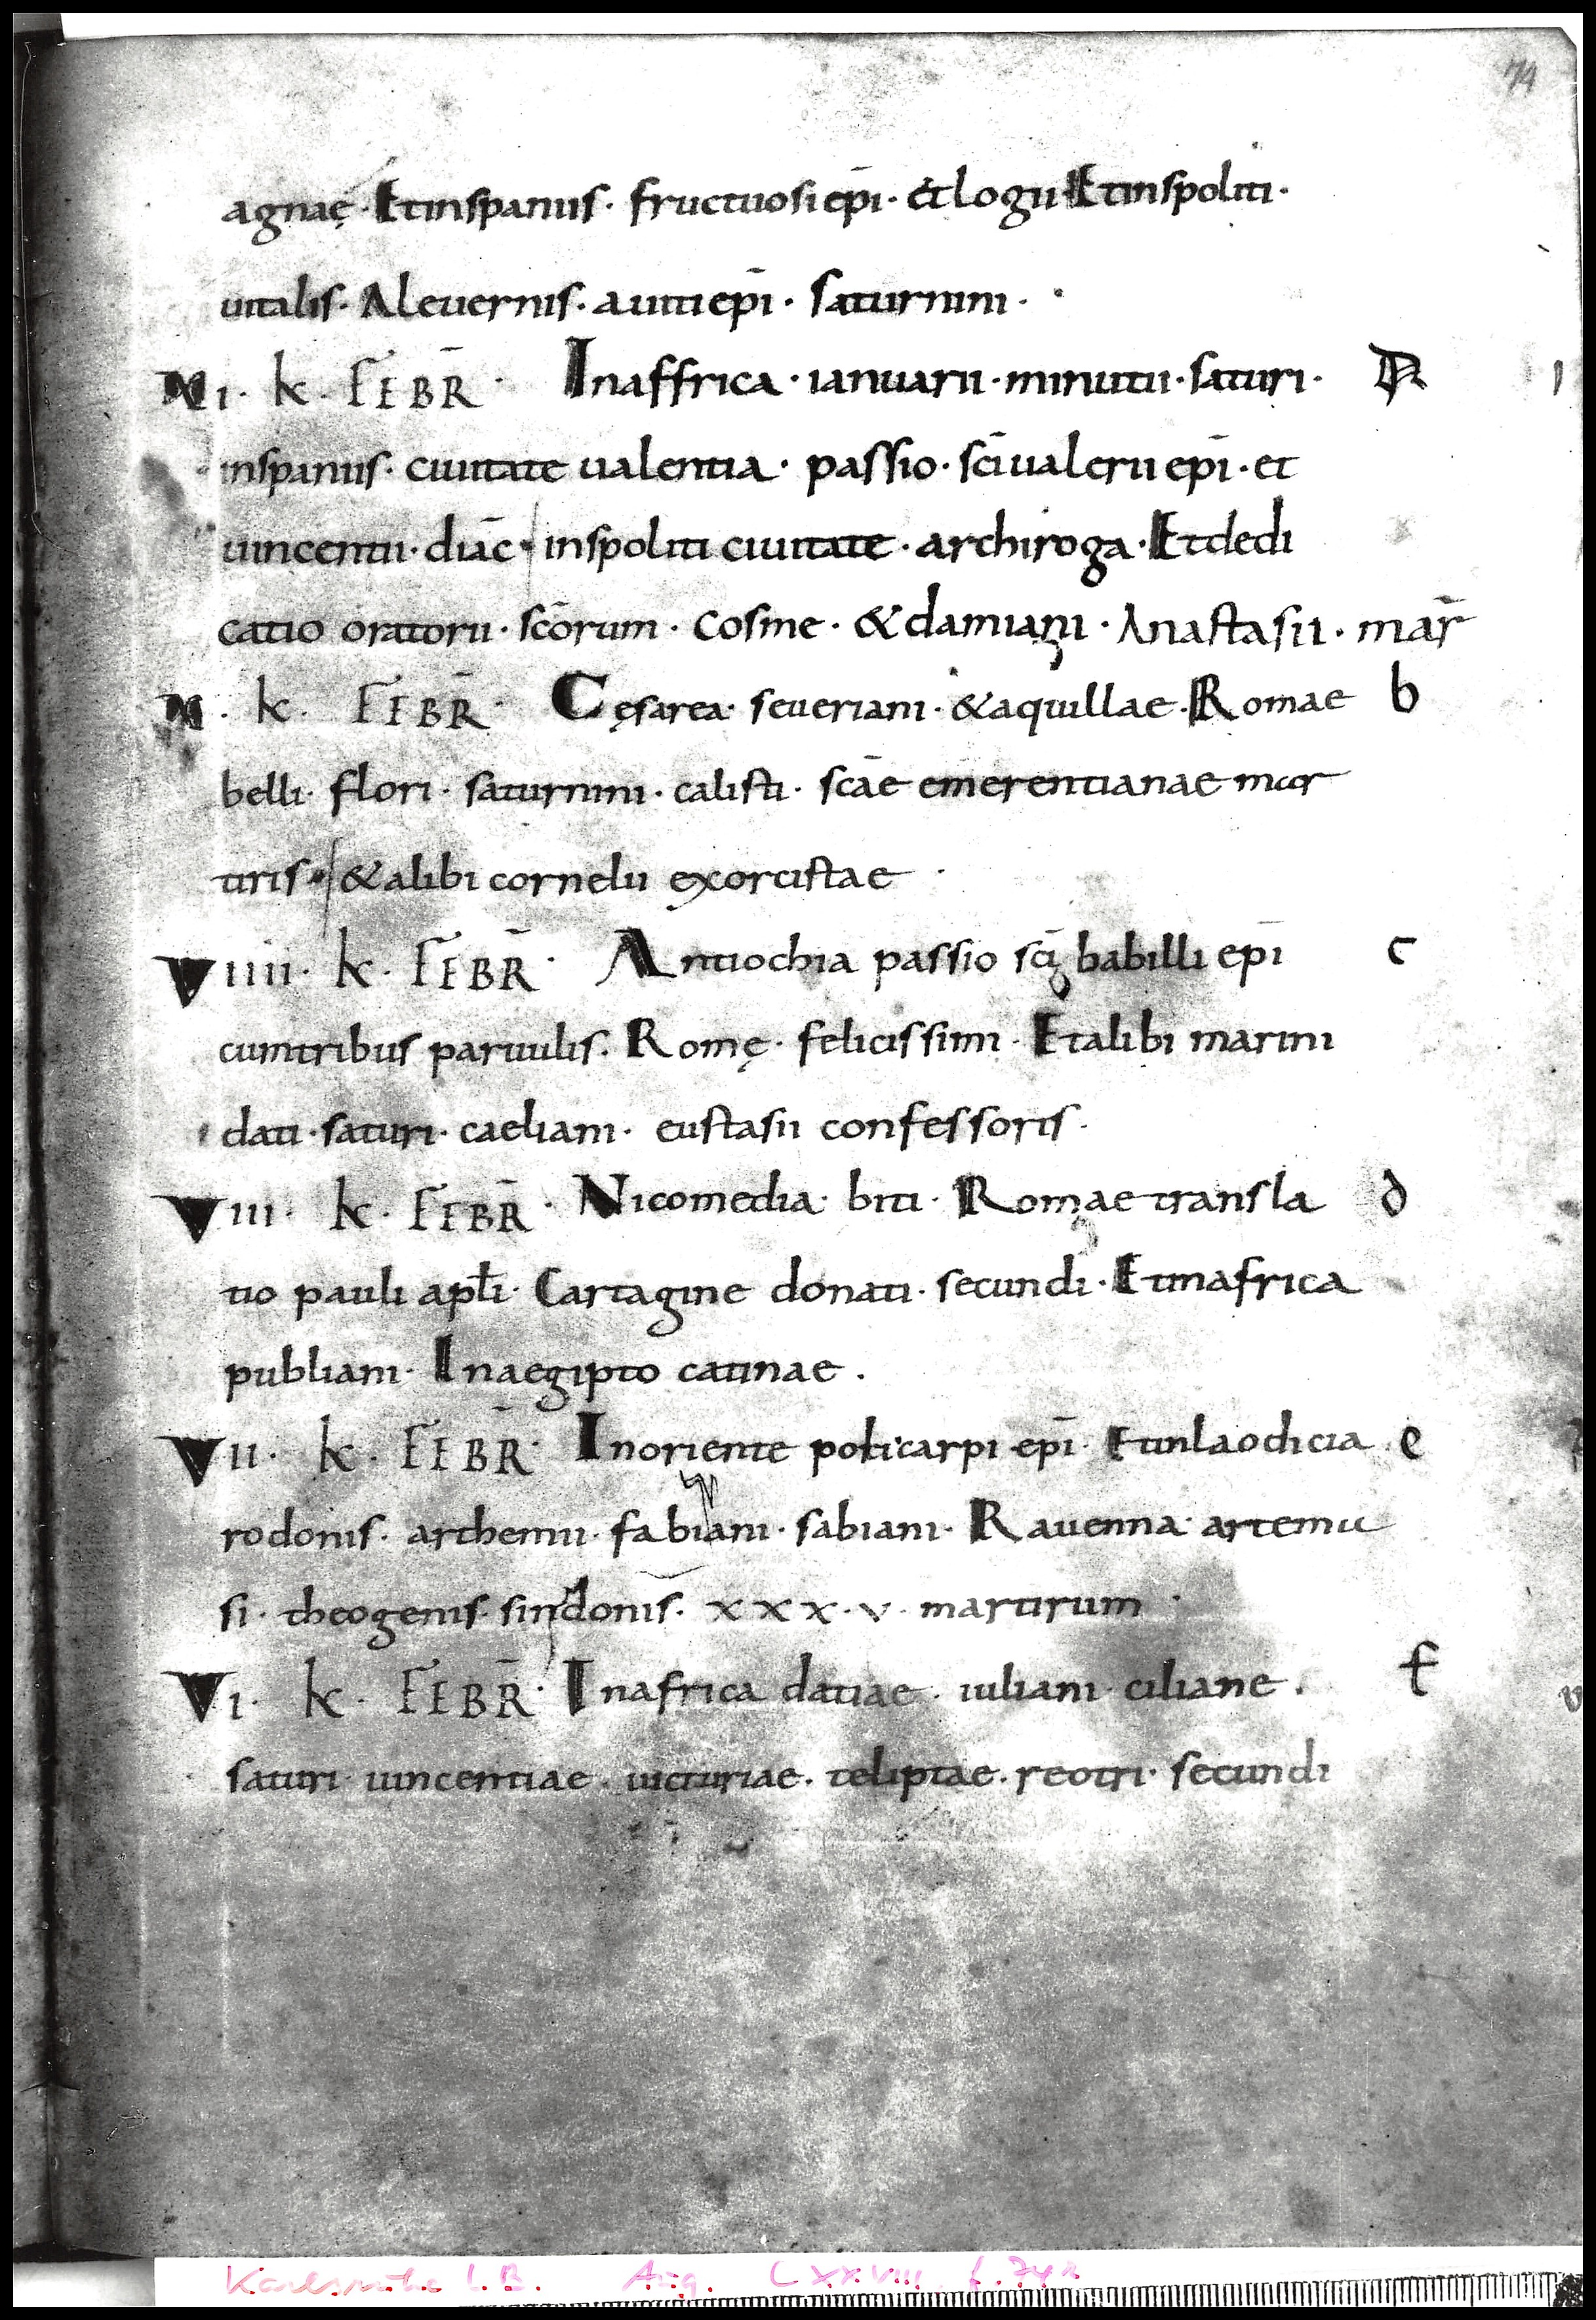 74
agnaę · Et inspaniis · fructuosi ep̄i · & logii Et inspoliti ·
uitalis · Aleuernis · auiti ep̄i · saturnini ·
XI · k · FEBR̄ · Inaffrica · ianuarii · minutii · saturi · A
inspaniis · ciuitate ualentia · passio · sc̄i ualerii ep̄i · et
uincentii · diāc · inspoliti ciuitate · archiroga · Et dedi
catio oratorii · sc̄orum · cosme · & damiani · Anastasii · mar̄
X · k · FEBR̄ · Cęsarea · seueriani · & aquillae · Romae b
belli · flori · saturnini · calisti · sc̄ae emerentianae mar
tiris · & alibi cornelii exorcistae
VIIII · k · FEBR̄ · Antiochia passio sc̄i babilli ep̄i c
cumtribus paruulis · Romę · felicissimi · Et alibi marini
dati · saturi · caeliani · eustasii confessoris ·
VIII · k · FEBR̄ · Nicomedia · biti · Romae transla d
tio pauli apl̄i · Cartagine donati · secundi · Et inafrica
publiani · Inaegipto catinae ·
VII · k · FEBR̄ · Inoriente policarpi ep̄i · Et inlaodicia · e
rodonis · arthemii · fabiani · sabiani · Rauenna artemii
si · theogenis · sindonis · xxx · v · martirum
VI · k · FEBR̄ · Inafrica datiae · iuliani ciliane · f
saturi uincentiae · uicturiae · teliptae · reotri · secundi
Karlsruhe L.B. Aug. CXXVIII f. 74r